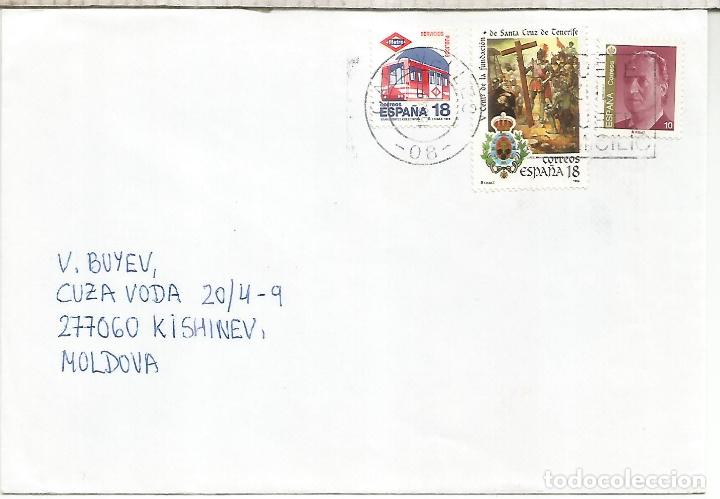 SERVICIOS
PUBLICOS
Metro
correos
ESPAÑA 18
V Cente de la fundación de Santa Cruz de Tenerife
correos
ESPAÑA 18
ESPAÑA
Correos
10
-08-
CILIO
V. BUYEV,
CUZA VODA 20/4-9
277060 KISHINEV,
MOLDOVA
todocoleccion.net